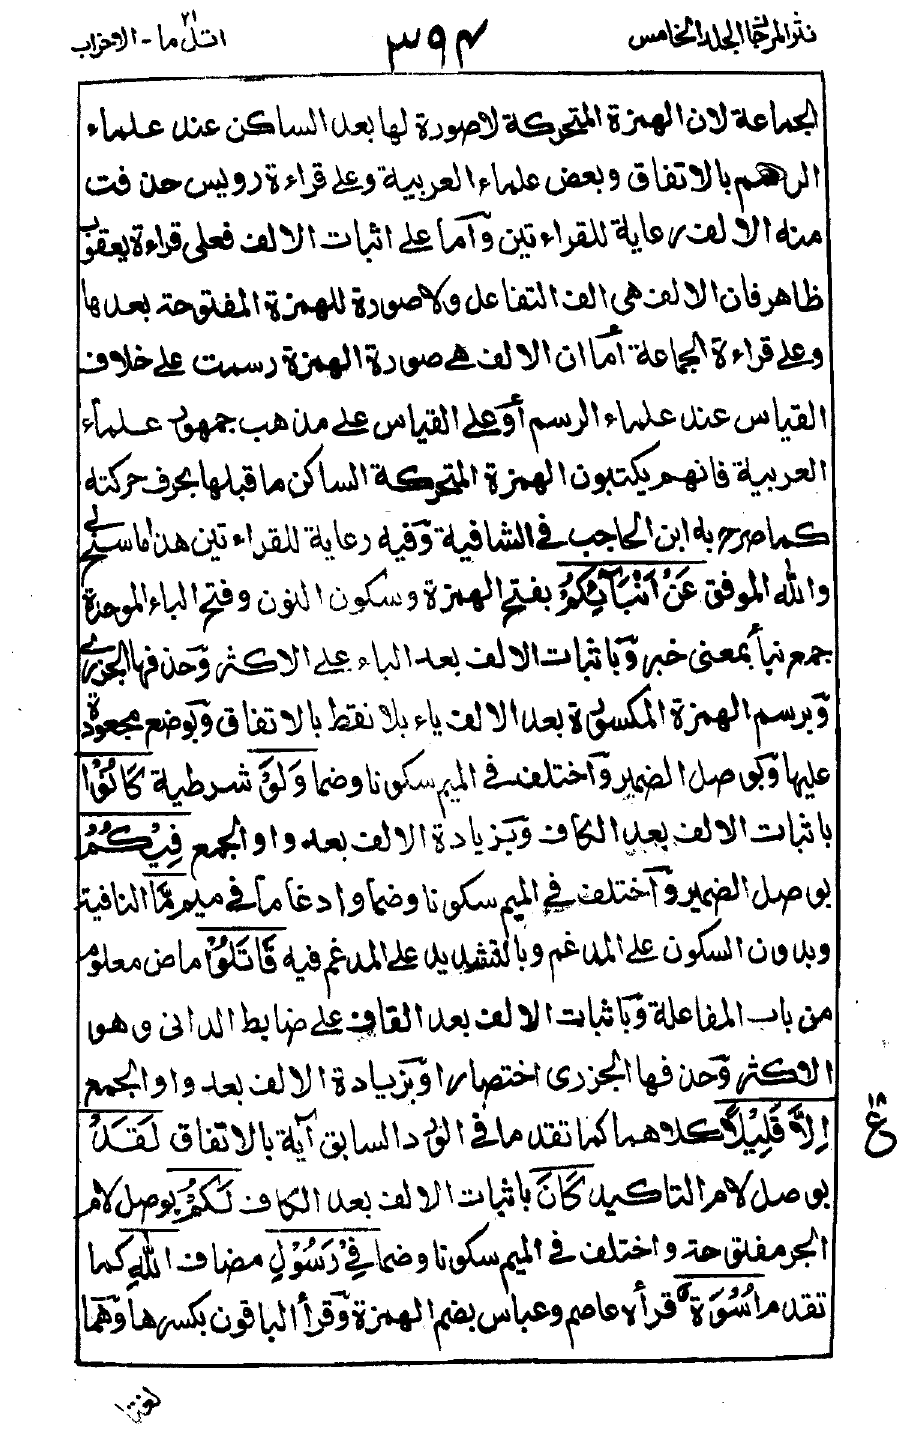 نثر المرجان الجلد الخامس
٣٩٤
اتل ما ٢١ - الاحزاب
الجماعة لان الهمزة المتحركة لا صورة لها بعد الساكن عند علماء
الرسم بالاتفاق وبعض علماء العربية وعلى قراءة رويس حذفت
منه الالف رعاية للقراءتين وأما على اثبات الالف فعلى قراءة يعقوب
ظاهر فان الالف هي الف التفاعل ولا صورة للهمزة المفتوحة بعدها
وعلى قراءة الجماعة أما ان الالف هي صورة الهمزة رسمت على خلاف
القياس عند علماء الرسم أو على القياس على مذهب جمهور علماء
العربية فانهم يكتبون الهمزة المتحركة الساكن ما قبلها بحرف حركته
كما صرح به ابن الحاجب في الشافية وفيه رعاية للقراءتين هذا ما سنح لي
والله الموفق عَنْ اَنْۢبَآئِكُمْ بفتح الهمزة وسكون النون وفتح الباء الموحدة
جمع نبأ بمعنى خبر وباثبات الالف بعد الباء على الاكثر وحذفها الجزري
وبرسم الهمزة المكسورة بعد الالف ياء بلا نقط بالاتفاق وبوضع مجعودة
عليها وبوصل الضمير واختلف في الميم سكونا وضما وَلَوْ شرطية كَانُوْا
باثبات الالف بعد الكاف وبزيادة الالف بعد واو الجمع فِيْكُمْ
بوصل الضمير واختلف في الميم سكونا وضما وادغاما في ميم مَّا النافية
وبدون السكون على المدغم وبالتشديد على المدغم فيه قَاتَلُوْٓا ماض معلوم
من باب المفاعلة وباثبات الالف بعد القاف على ضابط الداني وهو
الاكثر وحذفها الجزري اختصارا وبزيادة الالف بعد واو الجمع
اِلَّا قَلِيْلًا كلاهما كما تقدما في الورد السابق آية بالاتفاق لَقَدْ
بوصل لام التاكيد كَانَ باثبات الالف بعد الكاف لَكُمْ بوصل لام
الجر مفتوحة واختلف في الميم سكونا وضما فِيْ رَسُوْلِ مضاف اللّٰهِ كما
تقدما اُسْوَةٌ قرأه عاصم وعباس بضم الهمزة وقرأ الباقون بكسرها وهما
١٨
ع
لغتا